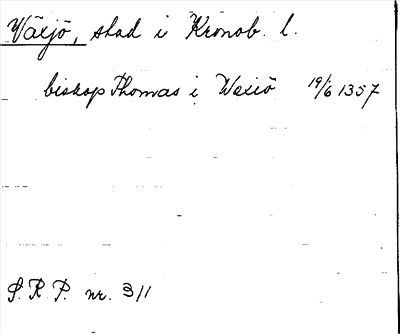 Växjö, stad i Kronob. l.
biskop Thomas i Wexiö 19/6 1357
S.R.P. nr. 311